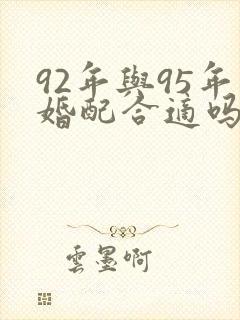 92年與95年
婚配合適吗
雲墨啊